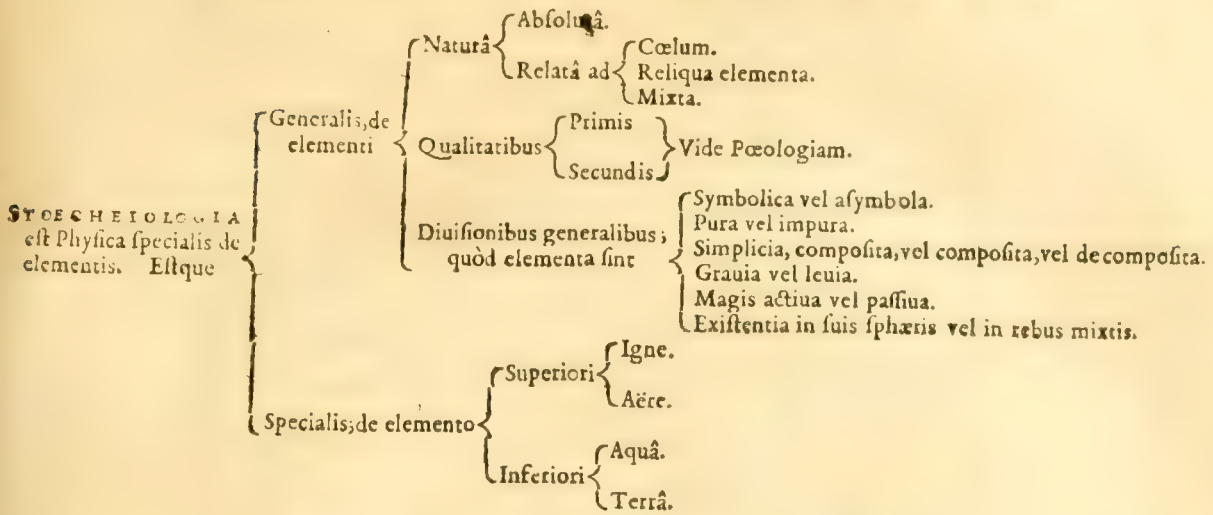 STOECHEIOLOGIA
eſt Phyſica ſpecialis de
elementis. Eſtque
Generalis, de
elementi
Naturâ
Abſolutâ.
Relatâ ad
Cœlum.
Reliqua elementa.
Mixta.
Qualitatibus
Primis
Secundis
Vide Pœologiam.
Diuiſionibus generalibus;
quòd elementa ſint
Symbolica vel aſymbola.
Pura vel impura.
Simplicia, compoſita, vel compoſita, vel decompoſita.
Grauia vel leuia.
Magis actiua vel paſſiua.
Exiſtentia in ſuis ſphæris vel in rebus mixtis.
Specialis; de elemento
Superiori
Igne.
Aëre.
Inferiori
Aquâ.
Terrâ.